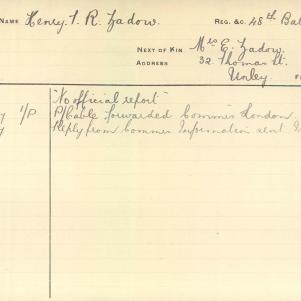 NAME Henry. T. R. Zadow. REG. &C. 48th Bat
NEXT OF KIN Mrs E. Zadow.
ADDRESS 32 Thomas St.
Unley.
"No official report"
1/P P/Cable forwarded Commrs London.
Reply from Commrs Information sent